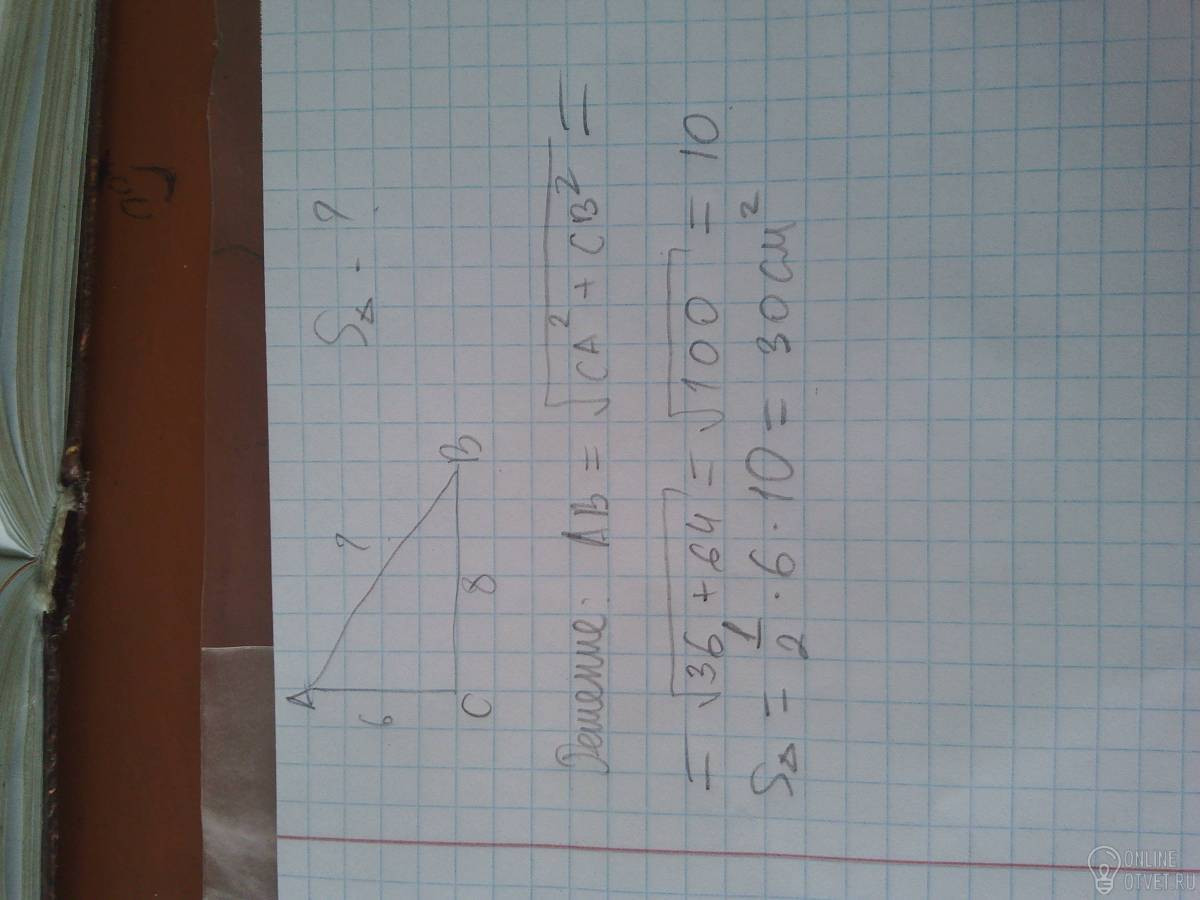 S△ - ?
A
6
?
C
8
B
Решение: AB = √CA² + CB² =
= √36 + 64 = √100 = 10
S△ = 1/2 · 6 · 10 = 30 см²
ONLINE
OTVET.RU